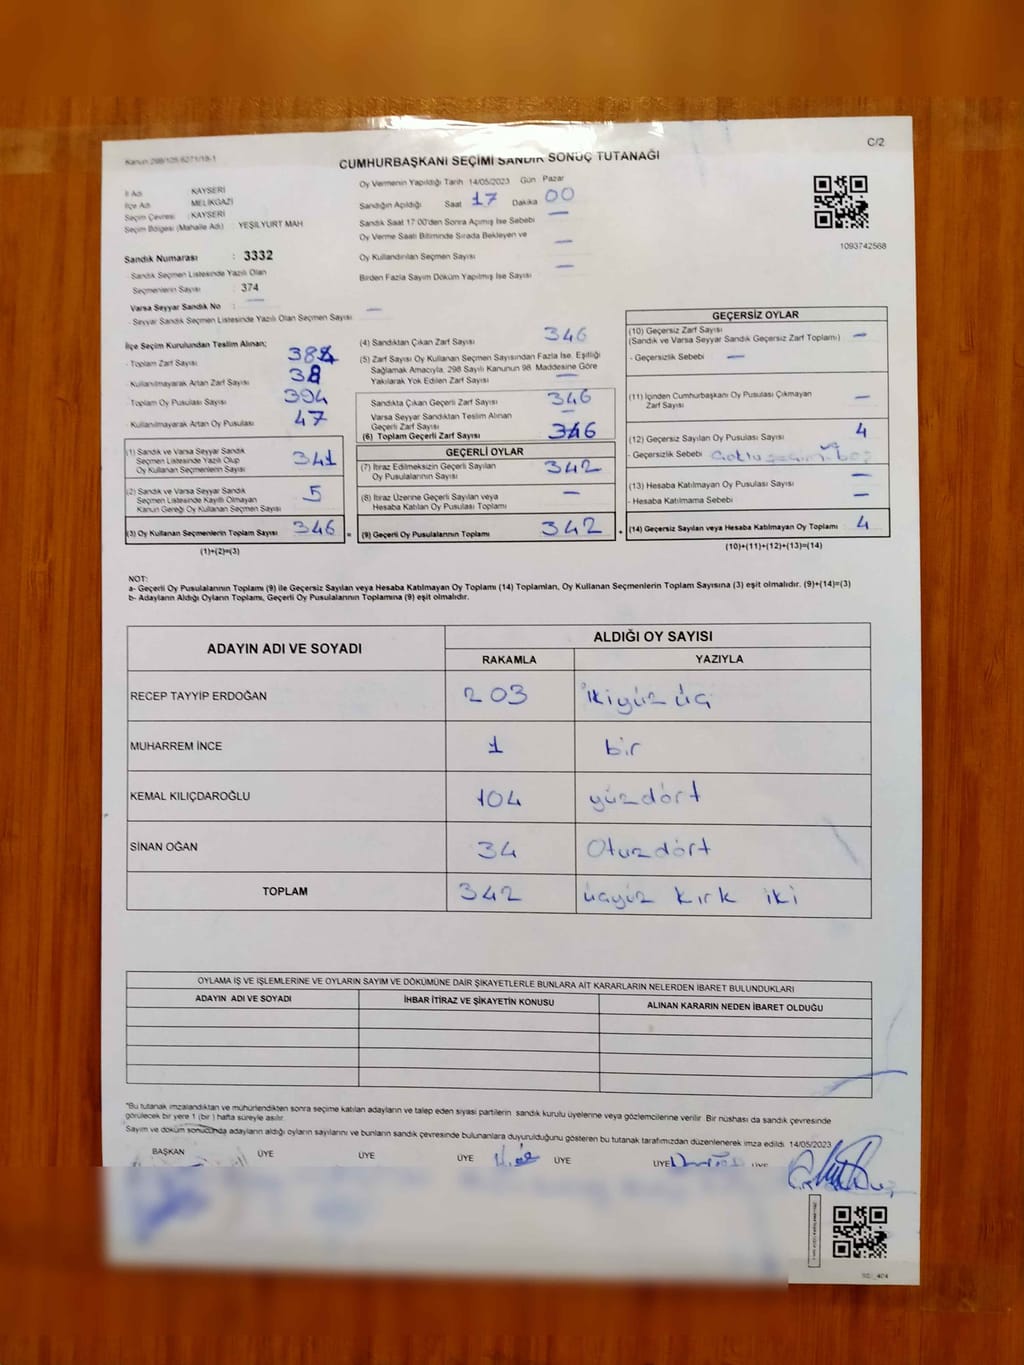 Kanun 298/105 6271/19-1
C/2
CUMHURBAŞKANI SEÇİMİ SANDIK SONUÇ TUTANAĞI
İl Adı : KAYSERİ
İlçe Adı : MELİKGAZİ
Seçim Çevresi : KAYSERİ
Seçim Bölgesi (Mahalle Adı) : YEŞİLYURT MAH
Sandık Numarası : 3332
Sandık Seçmen Listesinde Yazılı Olan
Seçmenlerin Sayısı : 374
Varsa Seyyar Sandık No : —
- Seyyar Sandık Seçmen Listesinde Yazılı Olan Seçmen Sayısı —
Oy Vermenin Yapıldığı Tarih 14/05/2023 Gün Pazar
Sandığın Açıldığı Saat 17 Dakika 00
Sandık Saat 17:00'den Sonra Açılmış İse Sebebi —
Oy Verme Saati Bitiminde Sırada Bekleyen ve
Oy Kullandırılan Seçmen Sayısı —
Birden Fazla Sayım Döküm Yapılmış İse Sayısı —
1093742568
İlçe Seçim Kurulundan Teslim Alınan;
- Toplam Zarf Sayısı 384
- Kullanılmayarak Artan Zarf Sayısı 38
- Toplam Oy Pusulası Sayısı 394
- Kullanılmayarak Artan Oy Pusulası 47
(1) Sandık ve Varsa Seyyar Sandık
Seçmen Listesinde Yazılı Olup
Oy Kullanan Seçmenlerin Sayısı 341
(2) Sandık ve Varsa Seyyar Sandık
Seçmen Listesinde Kayıtlı Olmayan
Kanun Gereği Oy Kullanan Seçmen Sayısı 5
(3) Oy Kullanan Seçmenlerin Toplam Sayısı 346 =
(1)+(2)=(3)
(4) Sandıktan Çıkan Zarf Sayısı 346
(5) Zarf Sayısı Oy Kullanan Seçmen Sayısından Fazla İse, Eşitliği
Sağlamak Amacıyla, 298 Sayılı Kanunun 98. Maddesine Göre
Yakılarak Yok Edilen Zarf Sayısı —
Sandıkta Çıkan Geçerli Zarf Sayısı 346
Varsa Seyyar Sandıktan Teslim Alınan
Geçerli Zarf Sayısı —
(6) Toplam Geçerli Zarf Sayısı 346
GEÇERLİ OYLAR
(7) İtiraz Edilmeksizin Geçerli Sayılan
Oy Pusulalarının Sayısı 342
(8) İtiraz Üzerine Geçerli Sayılan veya
Hesaba Katılan Oy Pusulası Toplamı —
(9) Geçerli Oy Pusulalarının Toplamı 342 +
GEÇERSİZ OYLAR
(10) Geçersiz Zarf Sayısı
(Sandık ve Varsa Seyyar Sandık Geçersiz Zarf Toplamı) —
- Geçersizlik Sebebi —
(11) İçinden Cumhurbaşkanı Oy Pusulası Çıkmayan
Zarf Sayısı —
(12) Geçersiz Sayılan Oy Pusulası Sayısı 4
- Geçersizlik Sebebi
(13) Hesaba Katılmayan Oy Pusulası Sayısı —
- Hesaba Katılmama Sebebi —
(14) Geçersiz Sayılan veya Hesaba Katılmayan Oy Toplamı 4
(10)+(11)+(12)+(13)=(14)
NOT:
a- Geçerli Oy Pusulalarının Toplamı (9) ile Geçersiz Sayılan veya Hesaba Katılmayan Oy Toplamı (14) Toplamları, Oy Kullanan Seçmenlerin Toplam Sayısına (3) eşit olmalıdır. (9)+(14)=(3)
b- Adayların Aldığı Oyların Toplamı, Geçerli Oy Pusulalarının Toplamına (9) eşit olmalıdır.
ADAYIN ADI VE SOYADI
ALDIĞI OY SAYISI
RAKAMLA YAZIYLA
RECEP TAYYİP ERDOĞAN 203 ikiyüz üç
MUHARREM İNCE 1 bir
KEMAL KILIÇDAROĞLU 104 yüzdört
SİNAN OĞAN 34 Otuzdört
TOPLAM 342 üçyüz kırk iki
OYLAMA İŞ VE İŞLEMLERİNE VE OYLARIN SAYIM VE DÖKÜMÜNE DAİR ŞİKAYETLERLE BUNLARA AİT KARARLARIN NELERDEN İBARET BULUNDUKLARI
ADAYIN ADI VE SOYADI İHBAR İTİRAZ VE ŞİKAYETİN KONUSU ALINAN KARARIN NEDEN İBARET OLDUĞU
*Bu tutanak imzalandıktan ve mühürlendikten sonra seçime katılan adayların ve talep eden siyasi partilerin sandık kurulu üyelerine veya gözlemcilerine verilir. Bir nüshası da sandık çevresinde
görülecek bir yere 1 (bir ) hafta süreyle asılır.
Sayım ve döküm sonucunda adayların aldığı oyların sayılarını ve bunların sandık çevresinde bulunanlara duyurulduğunu gösteren bu tutanak tarafımızdan düzenlenerek imza edildi. 14/05/2023
BAŞKAN ÜYE ÜYE ÜYE ÜYE ÜYE ÜYE